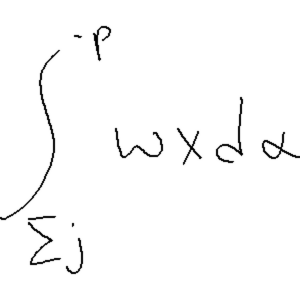 ∫_{Σj}^{-p} wxdα